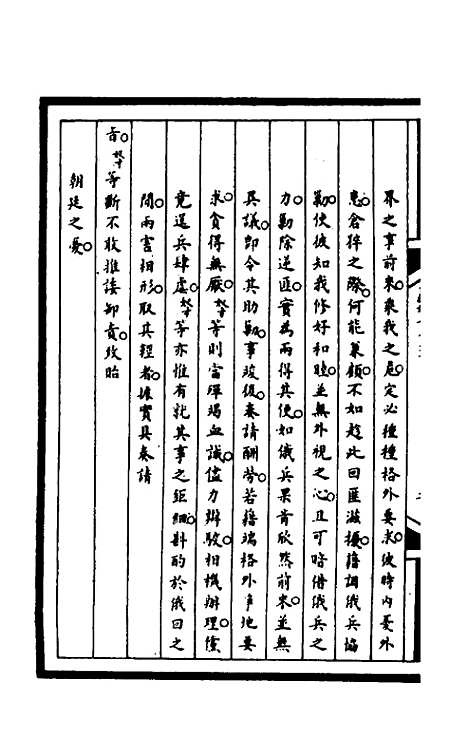 界之事前來乘我之危定必種種格外要求彼時內憂外
患倉猝之際何能兼顧不如趁此回匪滋擾藉調俄兵協
勦使彼知我修好和睦並無外視之心且可暗借俄兵之
力勦除逆匪實為兩得其便如俄兵果肯欣然前來並無
異議即令其助勦事竣後奏請酬勞若藉端格外爭地要
求貪得無厭奴才等則當殫竭血誠儘力辦駁相機辦理儻
竟逞兵肆虐奴才等亦惟有就其事之鉅細斟酌於俄回之
間兩害相形取其輕者據實具奏請
旨奴才等斷不敢推諉卸責致貽
朝廷之憂